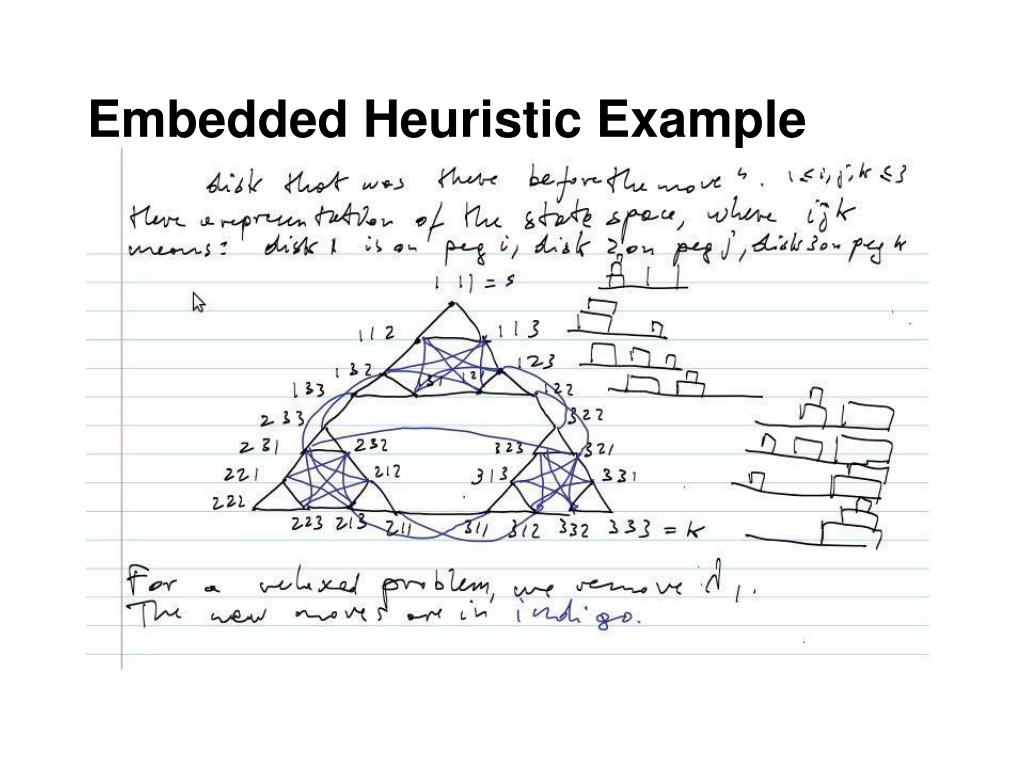 Embedded Heuristic Example
disk that was there before the move". 1≤i,j,k≤3
Here a representation of the state space, where ijk
means: disk 1 is on peg i, disk 2 on peg j, disk 3 on peg k
111 = s
112 113
132 131 121 123
133 122
233 322
231 232 323 321
221 212 313 331
222
223 213 211 311 312 332 333 = k
For a relaxed problem, we remove d1.
The new moves are in indigo.